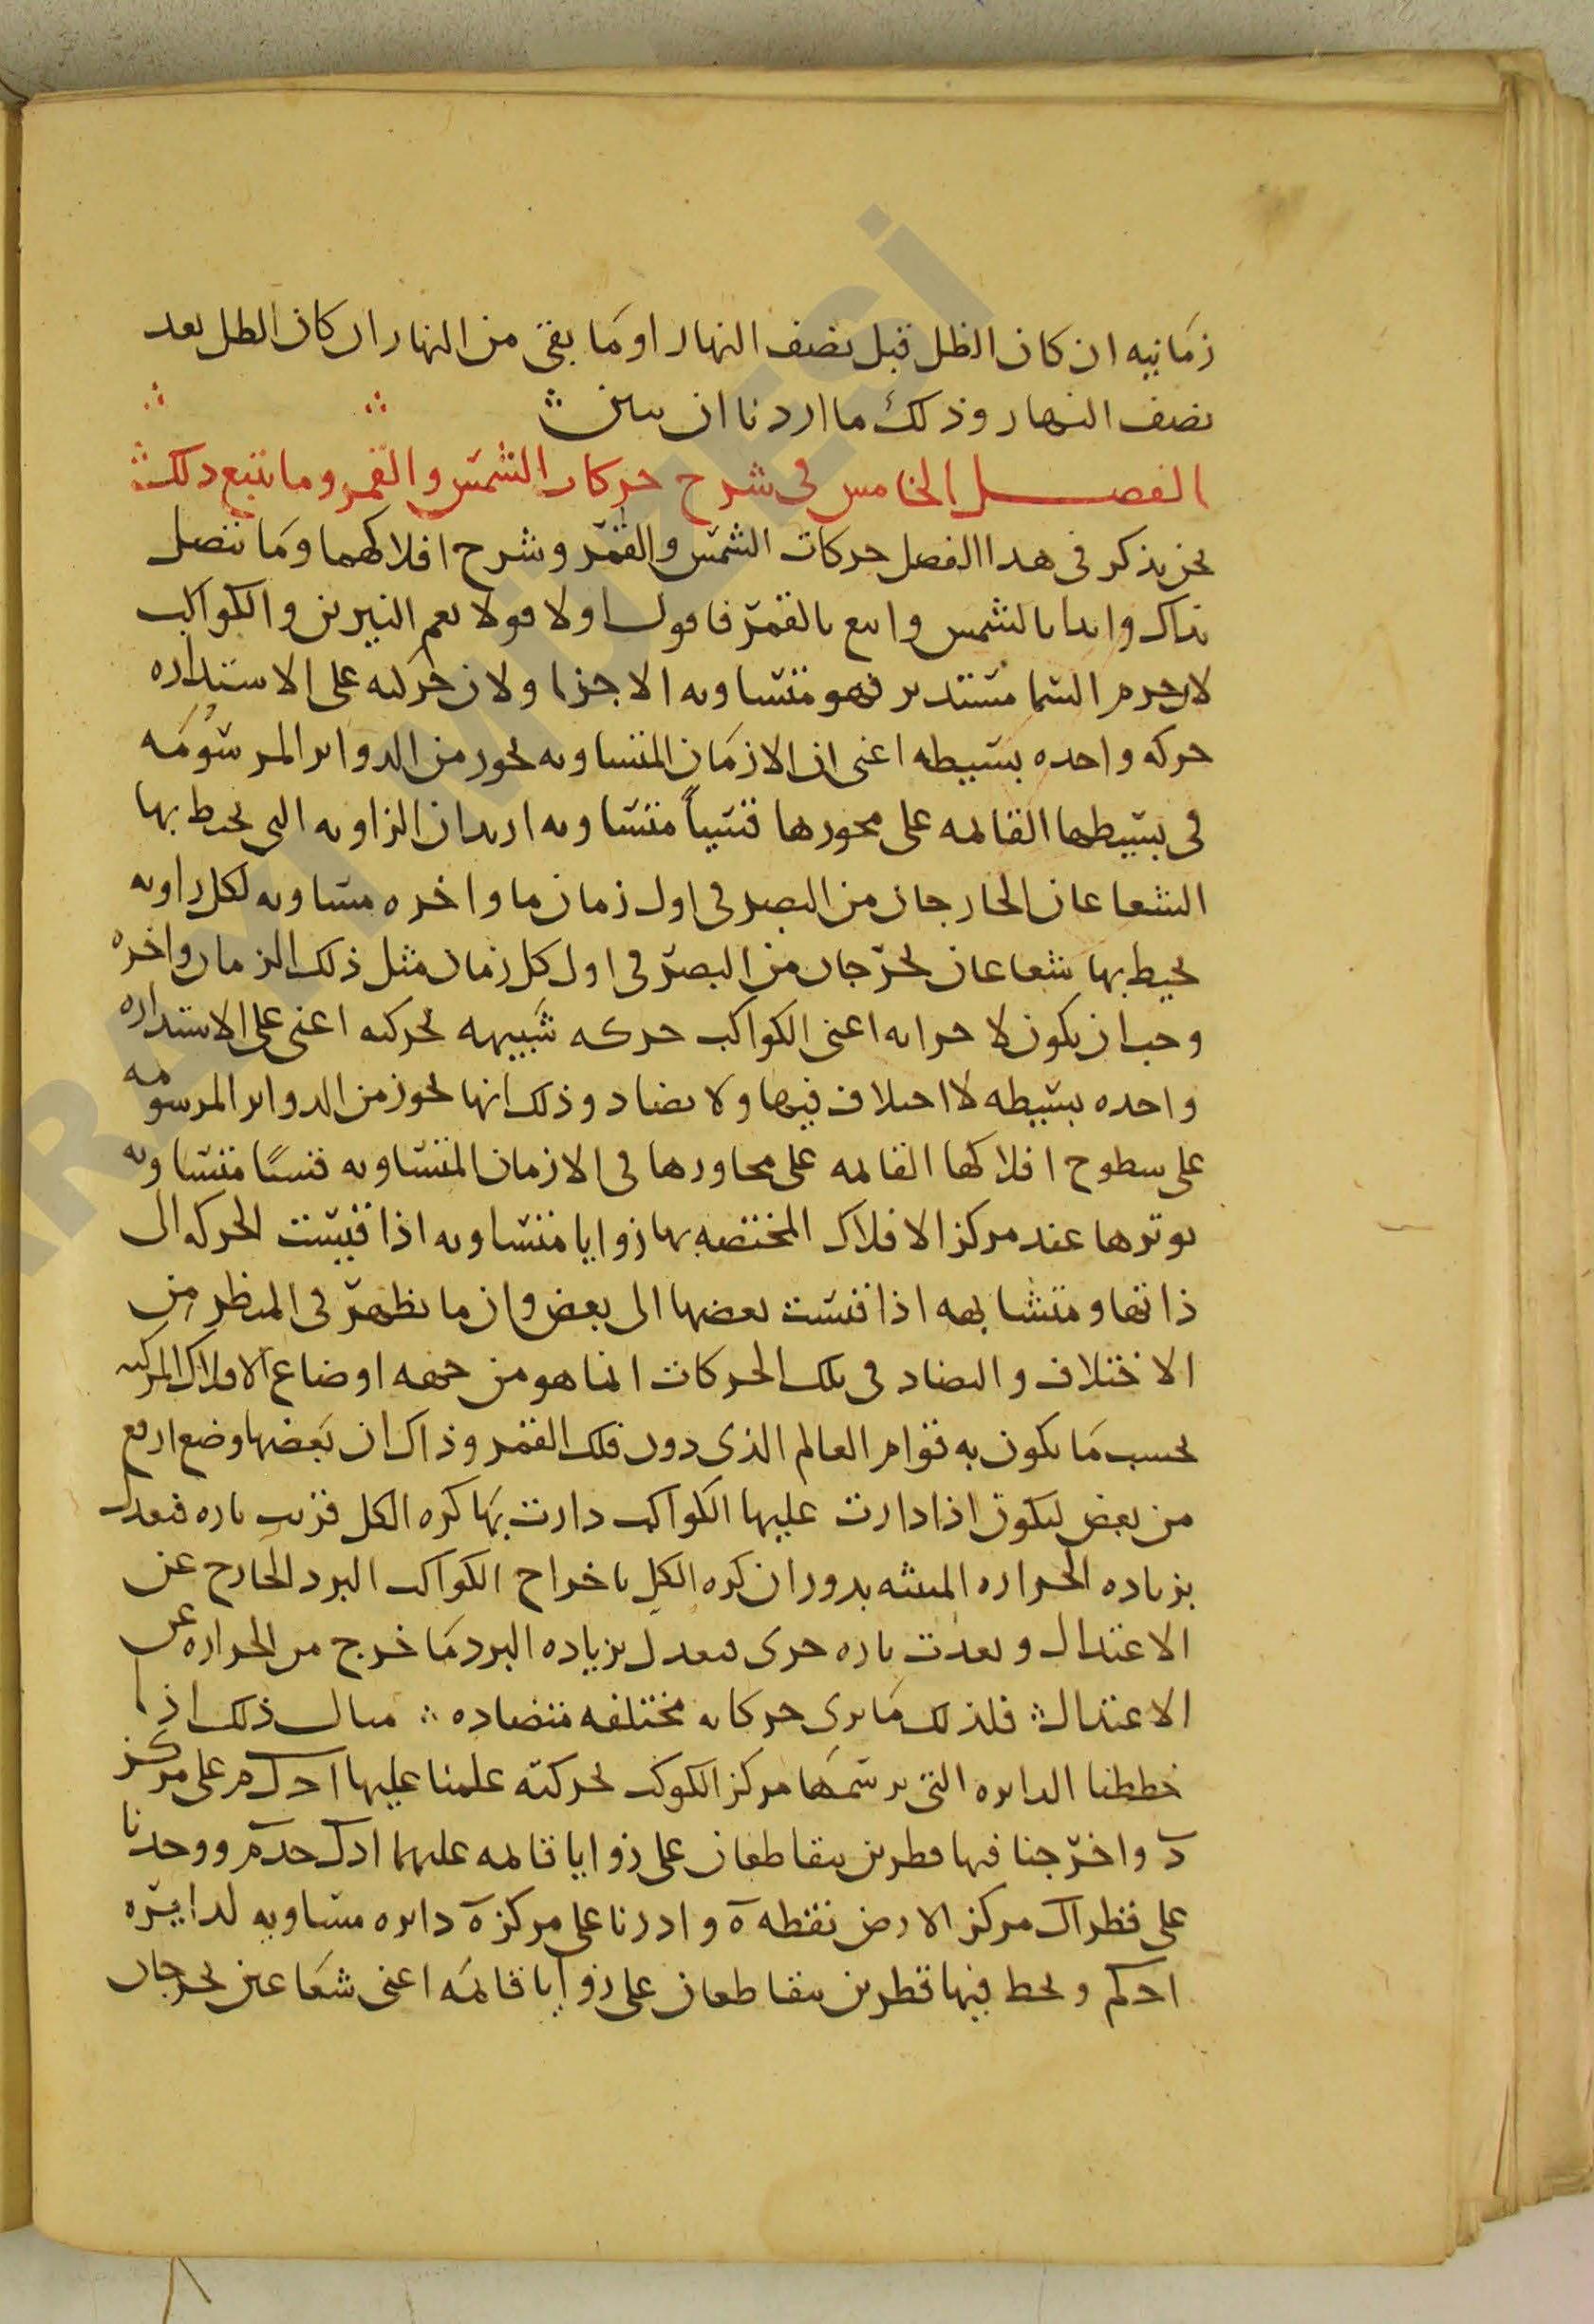 زمانيه ان كان الظل قبل نصف النهار او ما بقى من النهار ان كان الظل بعد
نصف النهار وذلك ما اردنا ان نبين
الفصل الخامس فى شرح حركات الشمس والقمر وما يتبع ذلك
نحن نذكر فى هذا الفصل حركات الشمس والقمر وشرح افلاكهما وما يتصل
بذاك وابدا بالشمس واتبع بالقمر فاقول اولا قولا يعم النيرين والكواكب
لان جرم السما مستدير فهو متساويه الاجزا ولان حركته على الاستداره
حركه واحده بسيطه اعنى ان الازمان المتساويه تحوز من الدواير المرسومه
فى بسيطها القايمه على محورها قسياً متساويه اريد ان الزاويه التى يحيط بها
الشعاعان الخارجان من البصر فى اول زمان ما واخره مساويه لكل زاويه
يحيط بها شعاعان يخرجان من البصر فى اول كل زمان مثل ذلك الزمان واخره
وجب ان يكون لاجرامه اعنى الكواكب حركه شبيهه بحركته اعنى على الاستداره
واحده بسيطه لا اختلاف فيها ولا تضاد وذلك انها تحوز من الدواير المرسومه
على سطوح افلاكها القايمه على محاورها فى الازمان المتساويه قسيًا متساويه
يوترها عند مركز الافلاك المختصه بها زوايا متساويه اذا قيست الحركه الى
ذاتها ومتشابهه اذا قيست بعضها الى بعض وان ما يظهر فى المنظر من
الاختلاف والتضاد فى تلك الحركات انما هو من جهه اوضاع الافلاك المركبه
بحسب ما يكون به قوام العالم الذى دون فلك القمر وذاك ان بعضها وضع ارفع
من بعض ليكون اذا دارت عليها الكواكب دارت بها كره الكل قربت تاره فتعدل
بزياده الحراره المنبثه بدوران كره الكل باخراج الكواكب البرد الخارج عن
الاعتدال وبعدت تاره اخرى فتعدل بزياده البرد ما خرج من الحراره عن
الاعتدال فلذلك ما يرى حركاته مختلفه متضاده مثال ذلك اذا
خططنا الدايره التى يرسمها مركز الكوكب بحركته علمنا عليها ا ح ك م على مركز
د واخرجنا فيها قطرين يتقاطعان على زوايا قايمه عليهما ا د ك ح د م ووجدنا
على قطر اك مركز الارض نقطه ه وادرنا على مركز ه دايره مساويه لدايره
احكم ونخط فيها قطرين يتقاطعان على زوايا قايمه اعنى شعاعين يخرجان